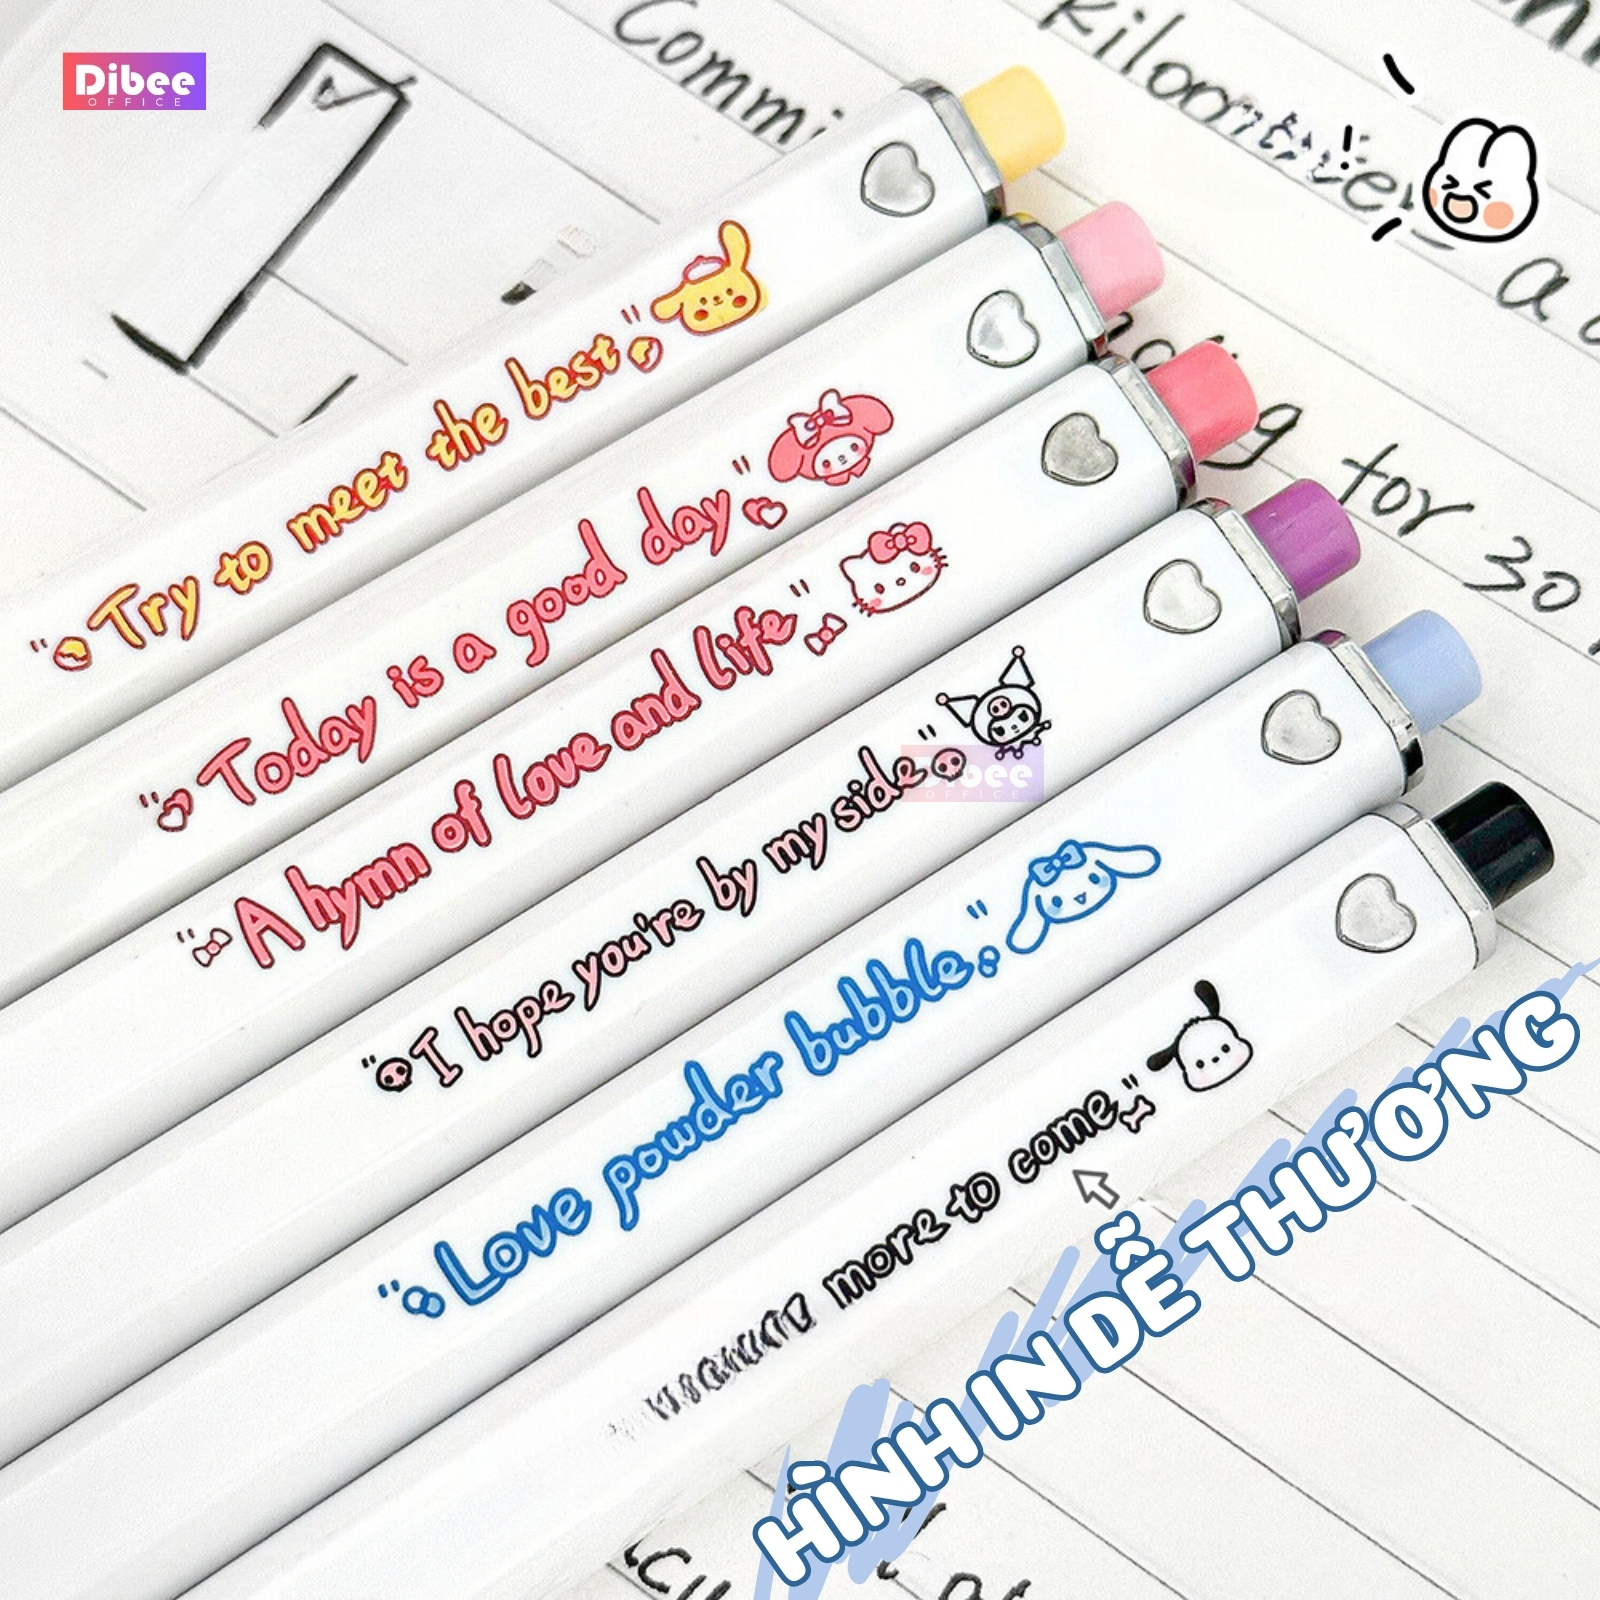 Dibee
OFFICE
Commi
kilometer
a
for 30
"Try to meet the best"
"Today is a good day"
"A hymn of love and life"
"I hope you're by my side"
Dibee
OFFICE
"Love powder bubble"
more to come"
HÌNH IN DỄ THƯƠNG